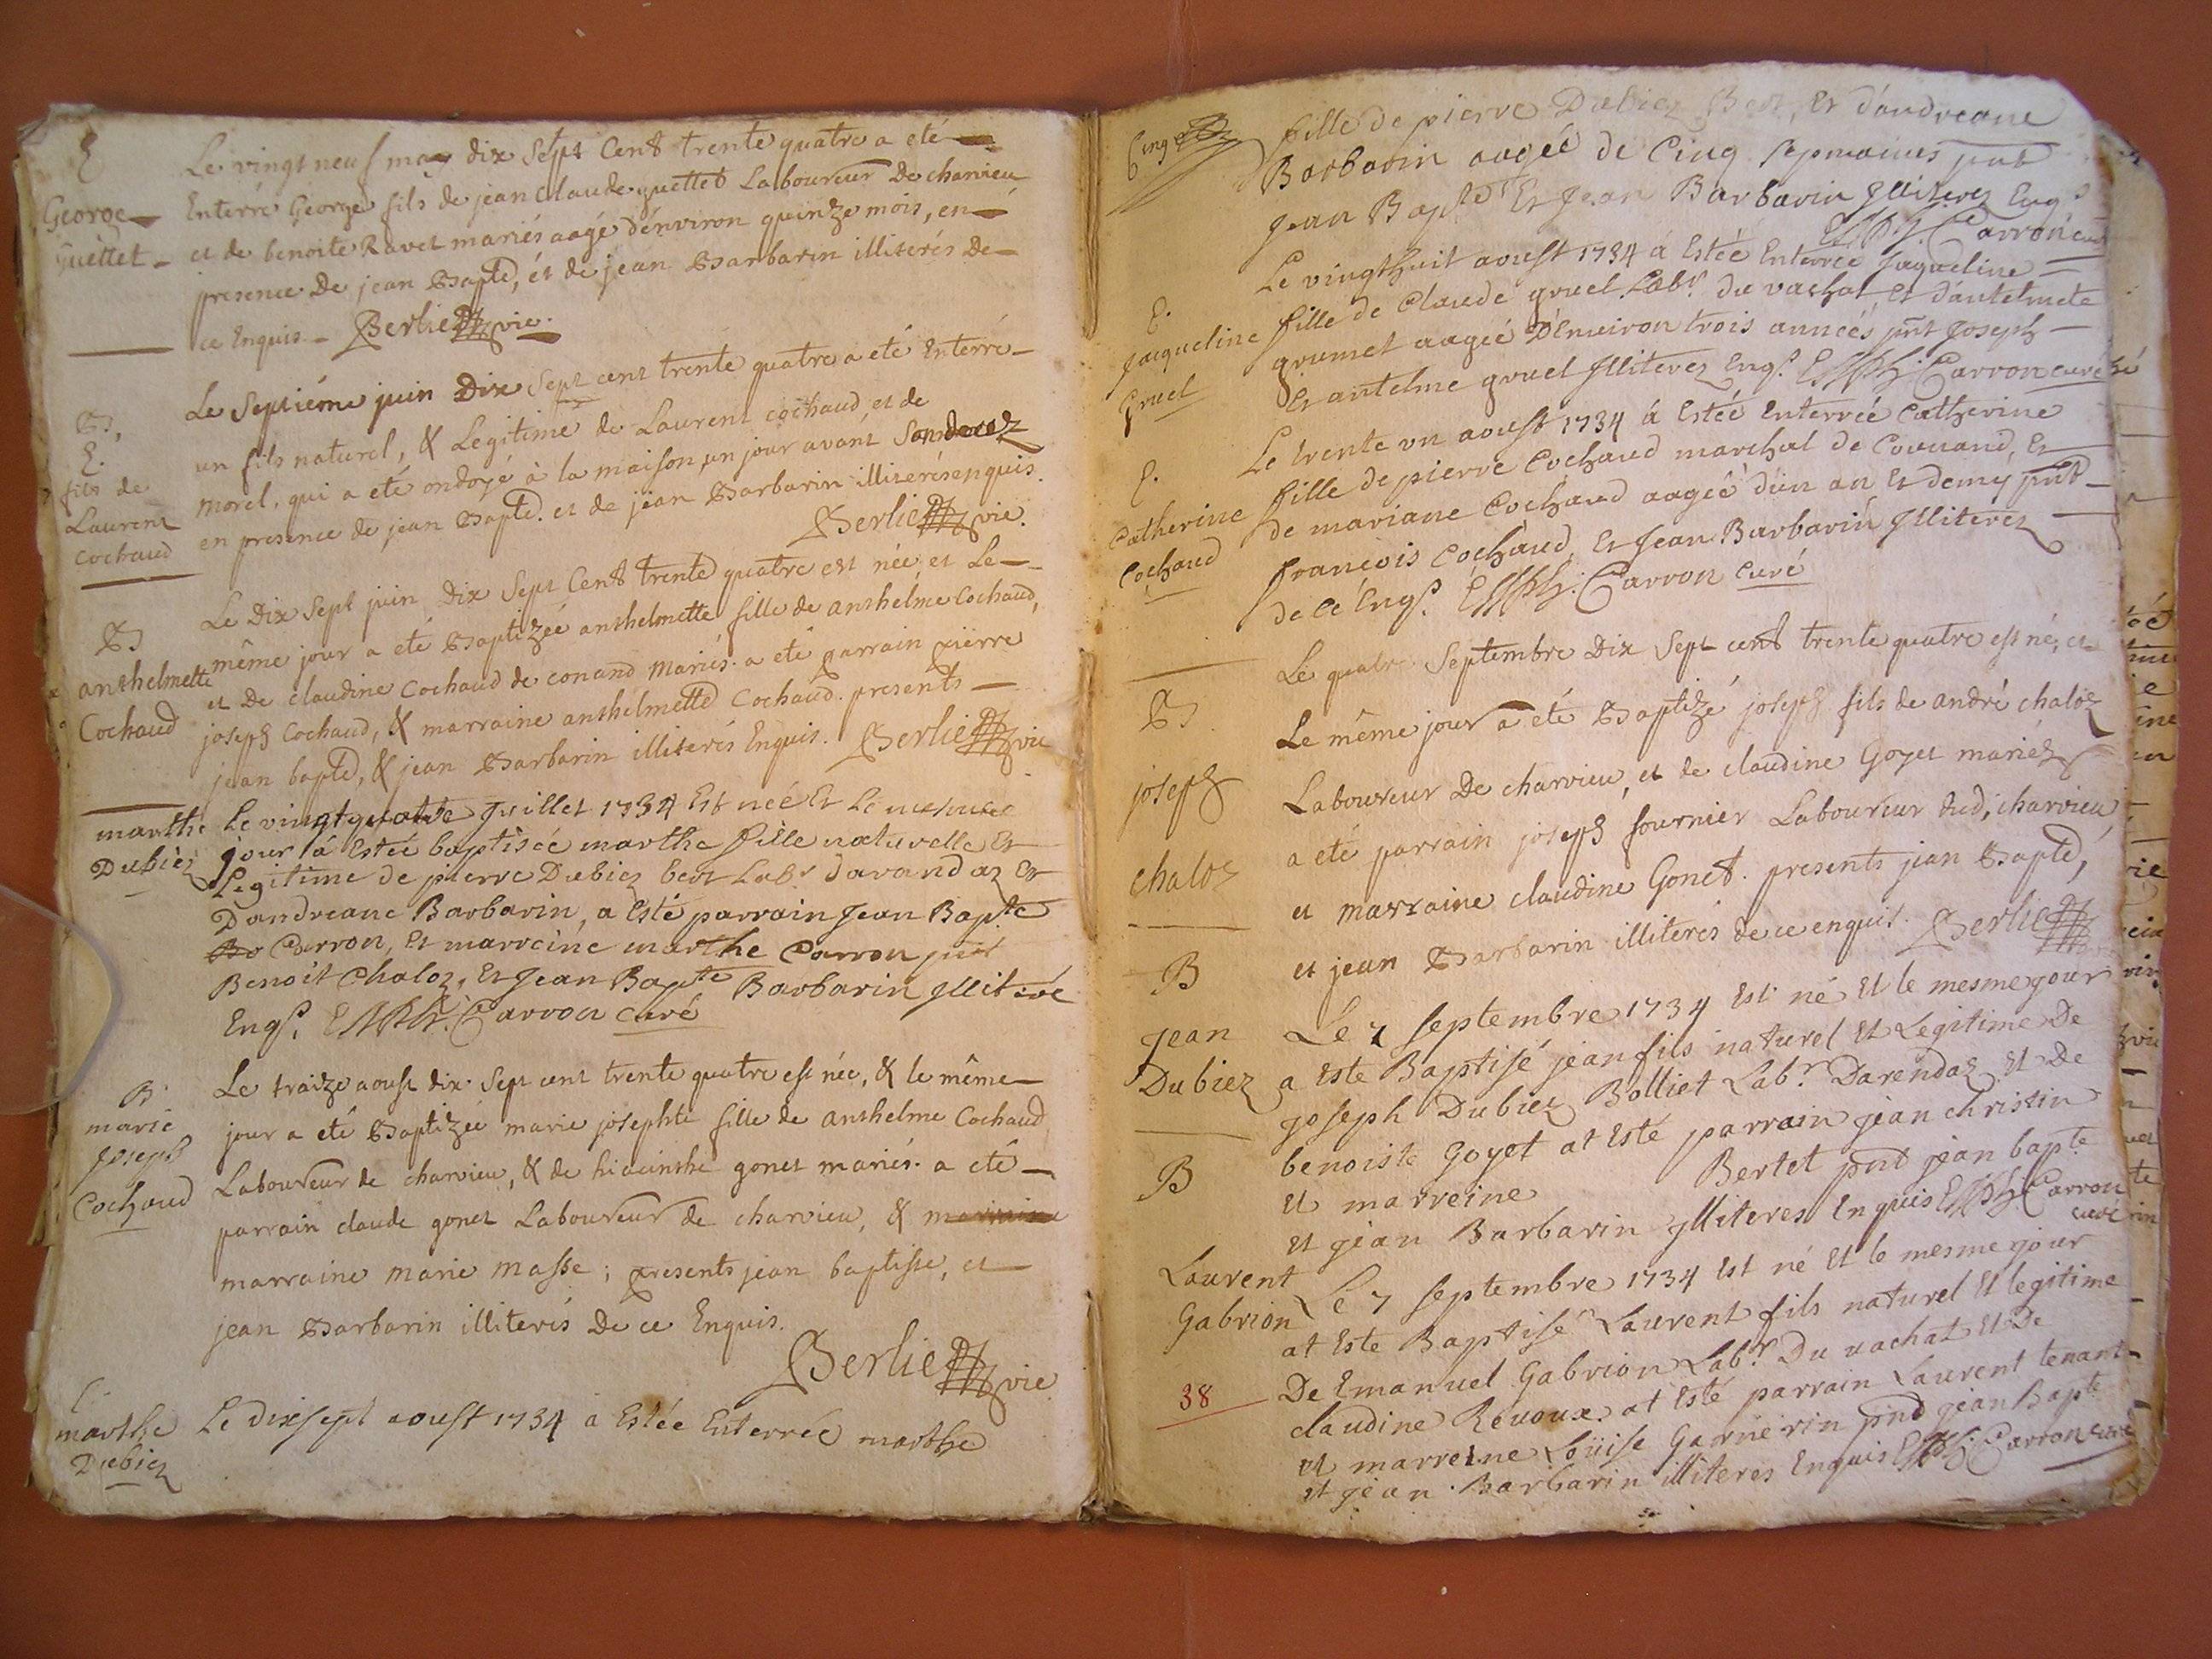 E
George
guettet
Le vingt neuf may dix Sept Cent trente quatre a eté
Enterré George fils de jean claude guettet Laboureur De charvieu
et de benoite Ravet mariés aagé d'énviron quinze mois, en
presence De jean Bapte, et de jean Barbarin illiterés De
ce Enquis. Berlie vic.
B,
E.
fils de
Laurent
cochaud
Le Septiéme juin Dix Sept cent trente quatre a eté Enterré
un fils naturel, & Legitime de Laurent cochaud, et de
morel, qui a eté ondoyé à la maison, un jour avant Son decez
en presence de jean Bapte. et de jean Barbarin illiterés enquis.
Berlie vic.
B
anthelmette
Cochaud
Le Dix Sept juin Dix Sept Cent trente quatre est née, et Le
même jour a eté Baptizée anthelmette fille de anthélme Cochaud,
et De claudine Cochaud de conand Mariés. a eté parrain pierre
joseph Cochaud, & marraine anthelmette Cochaud. presents
jean bapte, & jean Barbarin illiterés Enquis. Berlie vic
marthe
Dubiez
Le vingt quatre Juillet 1734 Est néé Et Le mesme
jour á Estéé baptiséé marthe fille naturelle Et
Legitime de pierre Dubiez beot Labr davandaz Et
Dandreane Barbarin, a Esté parrain Jean Bapte
Carron, Et marreine marthe Carron pnt
Benoit Chaloz, Et Jean Bapte Barbarin Illitéré
Enqs. Carron Curé
B
marie
Joseph
Cochaud
Le traize aoust dix Sept cent trente quatre est née, & le même
jour a eté Baptizée marie josephte fille de anthelme Cochaud
Laboureur de charvieu, & de hiacinthe gonet mariés. a eté
parrain claude gonet Laboureur de charvieu, & marraine
marraine Marie Masse ; presents jean baptiste, et
jean Barbarin illiterés De ce Enquis.
Berlie vic
E
marthe
Dubiez
Le dixsept aoust 1734 a Estée Enterrée marthe
fille de pierre Dubiez Beot, Et d'andreane
Barbarin aagéé de Cinq sepmaines pnt
Jean Bapte Et Jean Barbarin Illiterez Enqs
Carron curé
E.
Jaqueline
Gruel
Le vingt huit aoust 1734 á Estéé Enterréé Jaqueline
fille de Claude gruel Labr. du vachat Et d'antelmete
grumet aagéé D'Environ trois annéés pnt Joseph
Et antelme gruel Illiterez Enqs. Carron curé
E.
Catherine
Cochaud
Le trente un aoust 1734 á Estéé Enterréé Catherine
fille de pierre Cochaud marchal de Counand, Et
de mariane Cochaud aagéé d'un an Et demy pnt
francois Cochaud, Et Jean Barbarin Illiterez
de cé Enqs. Carron Curé
B
joseph
chaloz
Le quatre Septembre Dix Sept cent trente quatre est né, et
Le même jour a eté Baptizé joseph fils de andré chaloz
Laboureur De charvieu, et de claudine Goyet mariéz
a eté parrain joseph fournier Laboureur dud, charvieu
et marraine claudine Gonet. presents jean Bapte,
et jean Barbarin illiterés de ce enquis. Berlie
B
Jean
Dubiez
Le 7 septembre 1734 Est né Et le mesme jour
a Este Baptisé jean fils naturel Et Legitime De
joseph Dubiez Bolliet Labr. Darendaz Et De
benoiste Goyet at Esté parrain jean christin
Et marreine Bertet pnt jean bapte
Et jean Barbarin illiteres Enquis Carron
curé
B
Laurent
Gabrion
Le 7 septembre 1734 Est né Et le mesme jour
at Este Baptisé Laurent fils naturel Et legitime
De Emanuel Gabrion Labr. Du vachat Et De
claudine Revoux at Esté parrain Laurent tenant
et marreine Loüise Garnerin pnt jean bapte
et jean Barbarin illiteres Enquis Carron curé
38